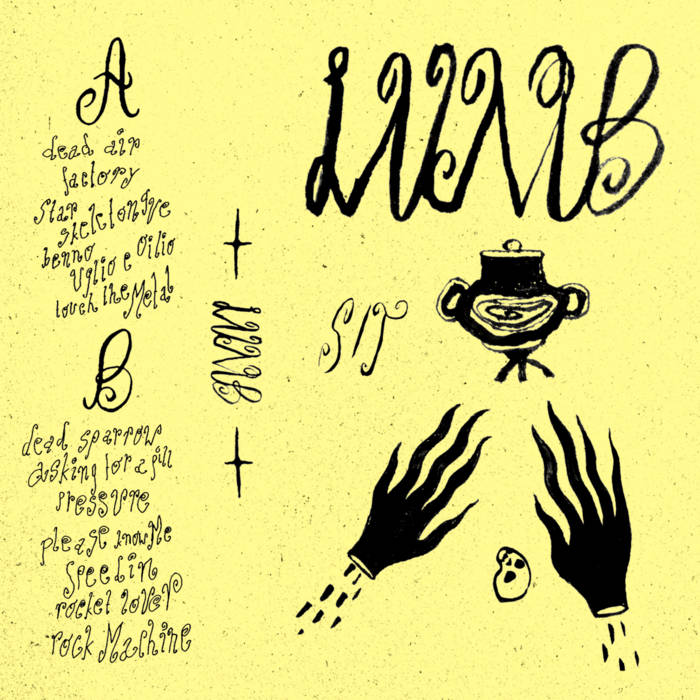 A
dead air
factory
Star
benno
Uglio e Oilio
touch the Metal
B
dead sparrow
asking for a pill
pressure
please know Me
Speedin
rocket lover
rock Machine
LUMB
LUMB
S/T